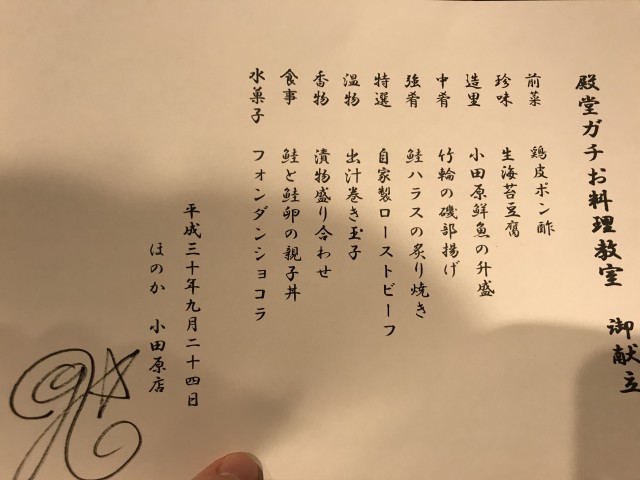 殿堂ガチお料理教室 御献立
前菜 鶏皮ポン酢
珍味 生海苔豆腐
造里 小田原鮮魚の升盛
中肴 竹輪の磯部揚げ
強肴 鮭ハラスの炙り焼き
特選 自家製ローストビーフ
温物 出汁巻き玉子
香物 漬物盛り合わせ
食事 鮭と鮭卵の親子丼
水菓子 フォンダンショコラ
平成三十年九月二十四日
ほのか 小田原店